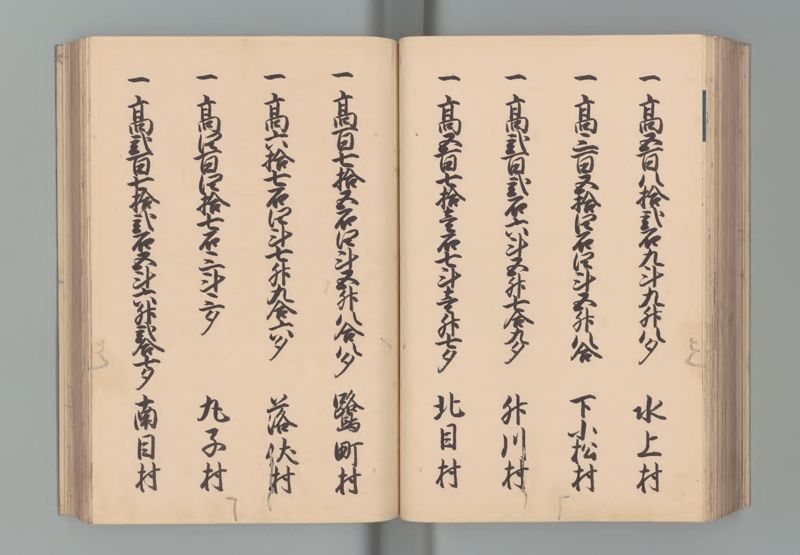 一高五百八拾弐石九斗九升八夕 水上村
一高三百五拾四石四斗五升八合 下小松村
一高弐百弐石六斗五升七合九夕 升川村
一高五百七拾壱石七斗壱升七夕 北目村
一高百七拾五石四斗五升八合八夕 鷺町村
一高六拾七石四斗七升九合六夕 落伏村
一高四百四拾七石二斗二夕 丸子村
一高弐百七拾弐石五斗六升弐合七夕 南目村